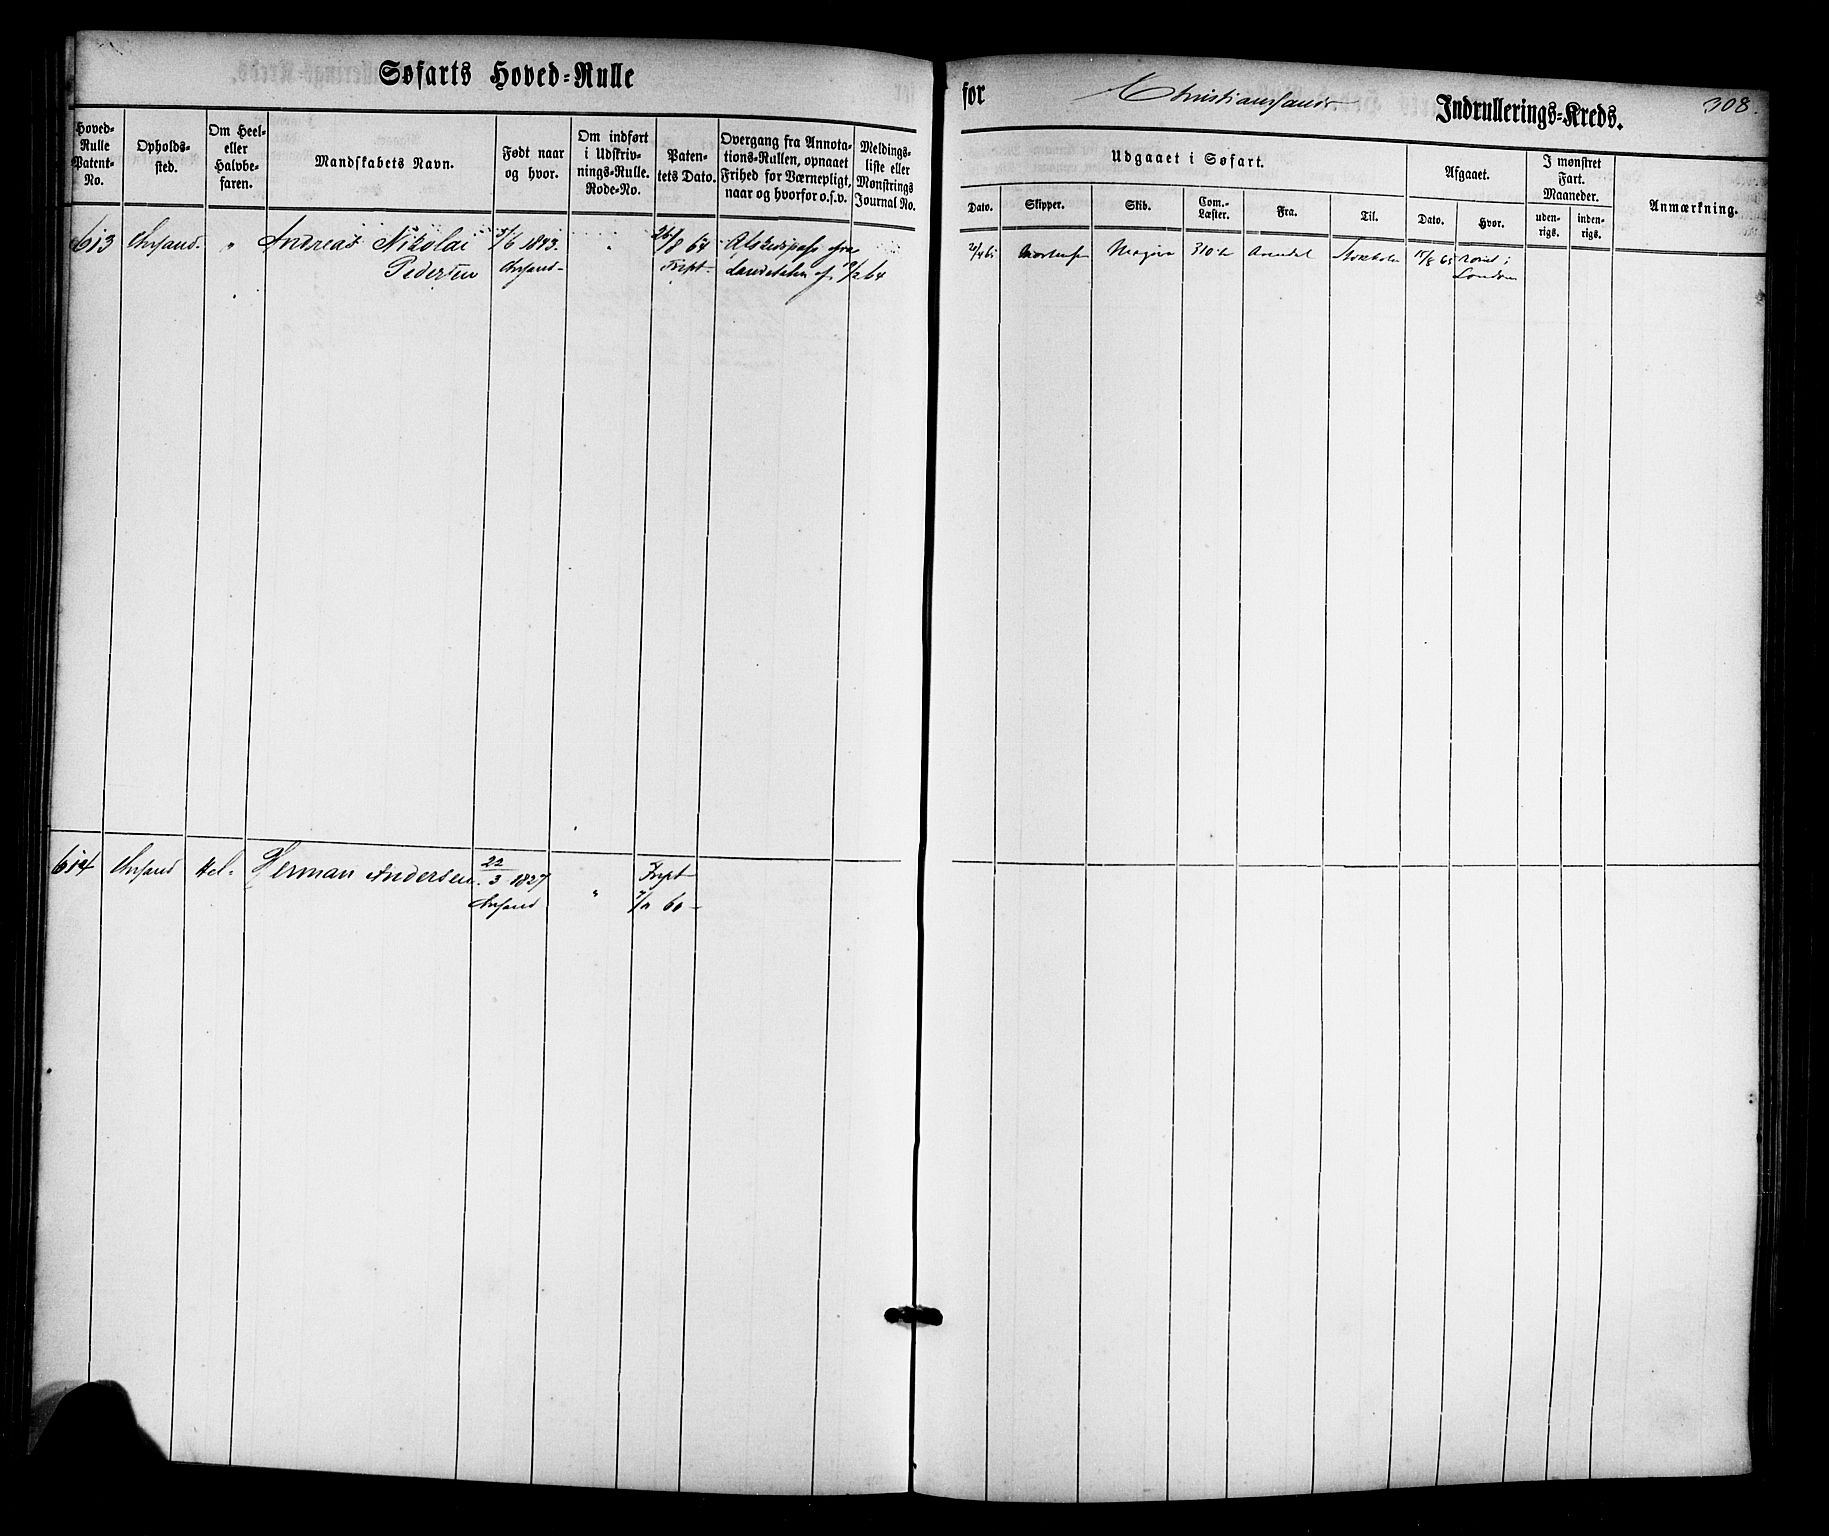 Søfarts Hoved-Rulle
for Christianssands Indrullerings-Kreds. 308.
Hoved-Rulle Patent-No.
Opholds-sted.
Om Heel- eller Halvbe-faren.
Mandskabets Navn.
Født naar og hvor.
Om indført i Udskriv-nings-Rulle. Rode-No.
Paten-tets Dato.
Overgang fra Annota-tions-Rullen, opnaaet Frihed for Værnepligt, naar og hvorfor o.s.v.
Meldings-liste eller Mønstrings Journal No.
Udgaaet i Søfart.
Dato.
Skipper.
Skib.
Com.-Læster.
Fra.
Til.
Afgaaet.
Dato.
Hvor.
I mønstret Fart. Maaneder.
uden-rigs.
inden-rigs.
Anmærkning.
613 Chrsand. " Andreas Nikolai 5/6 1843. " 26/8 64 Afskedspass fra
Pedersen Chrsand- Frpt- Landetaten af 9/2 64
20/4 65 Mortensen Major 310 Arendal Stokholm 15/8 65 rømt i
London
614 Chrsand Hel- Herman Andersen 22/3 1827 " Frpt
Chrsand 60-